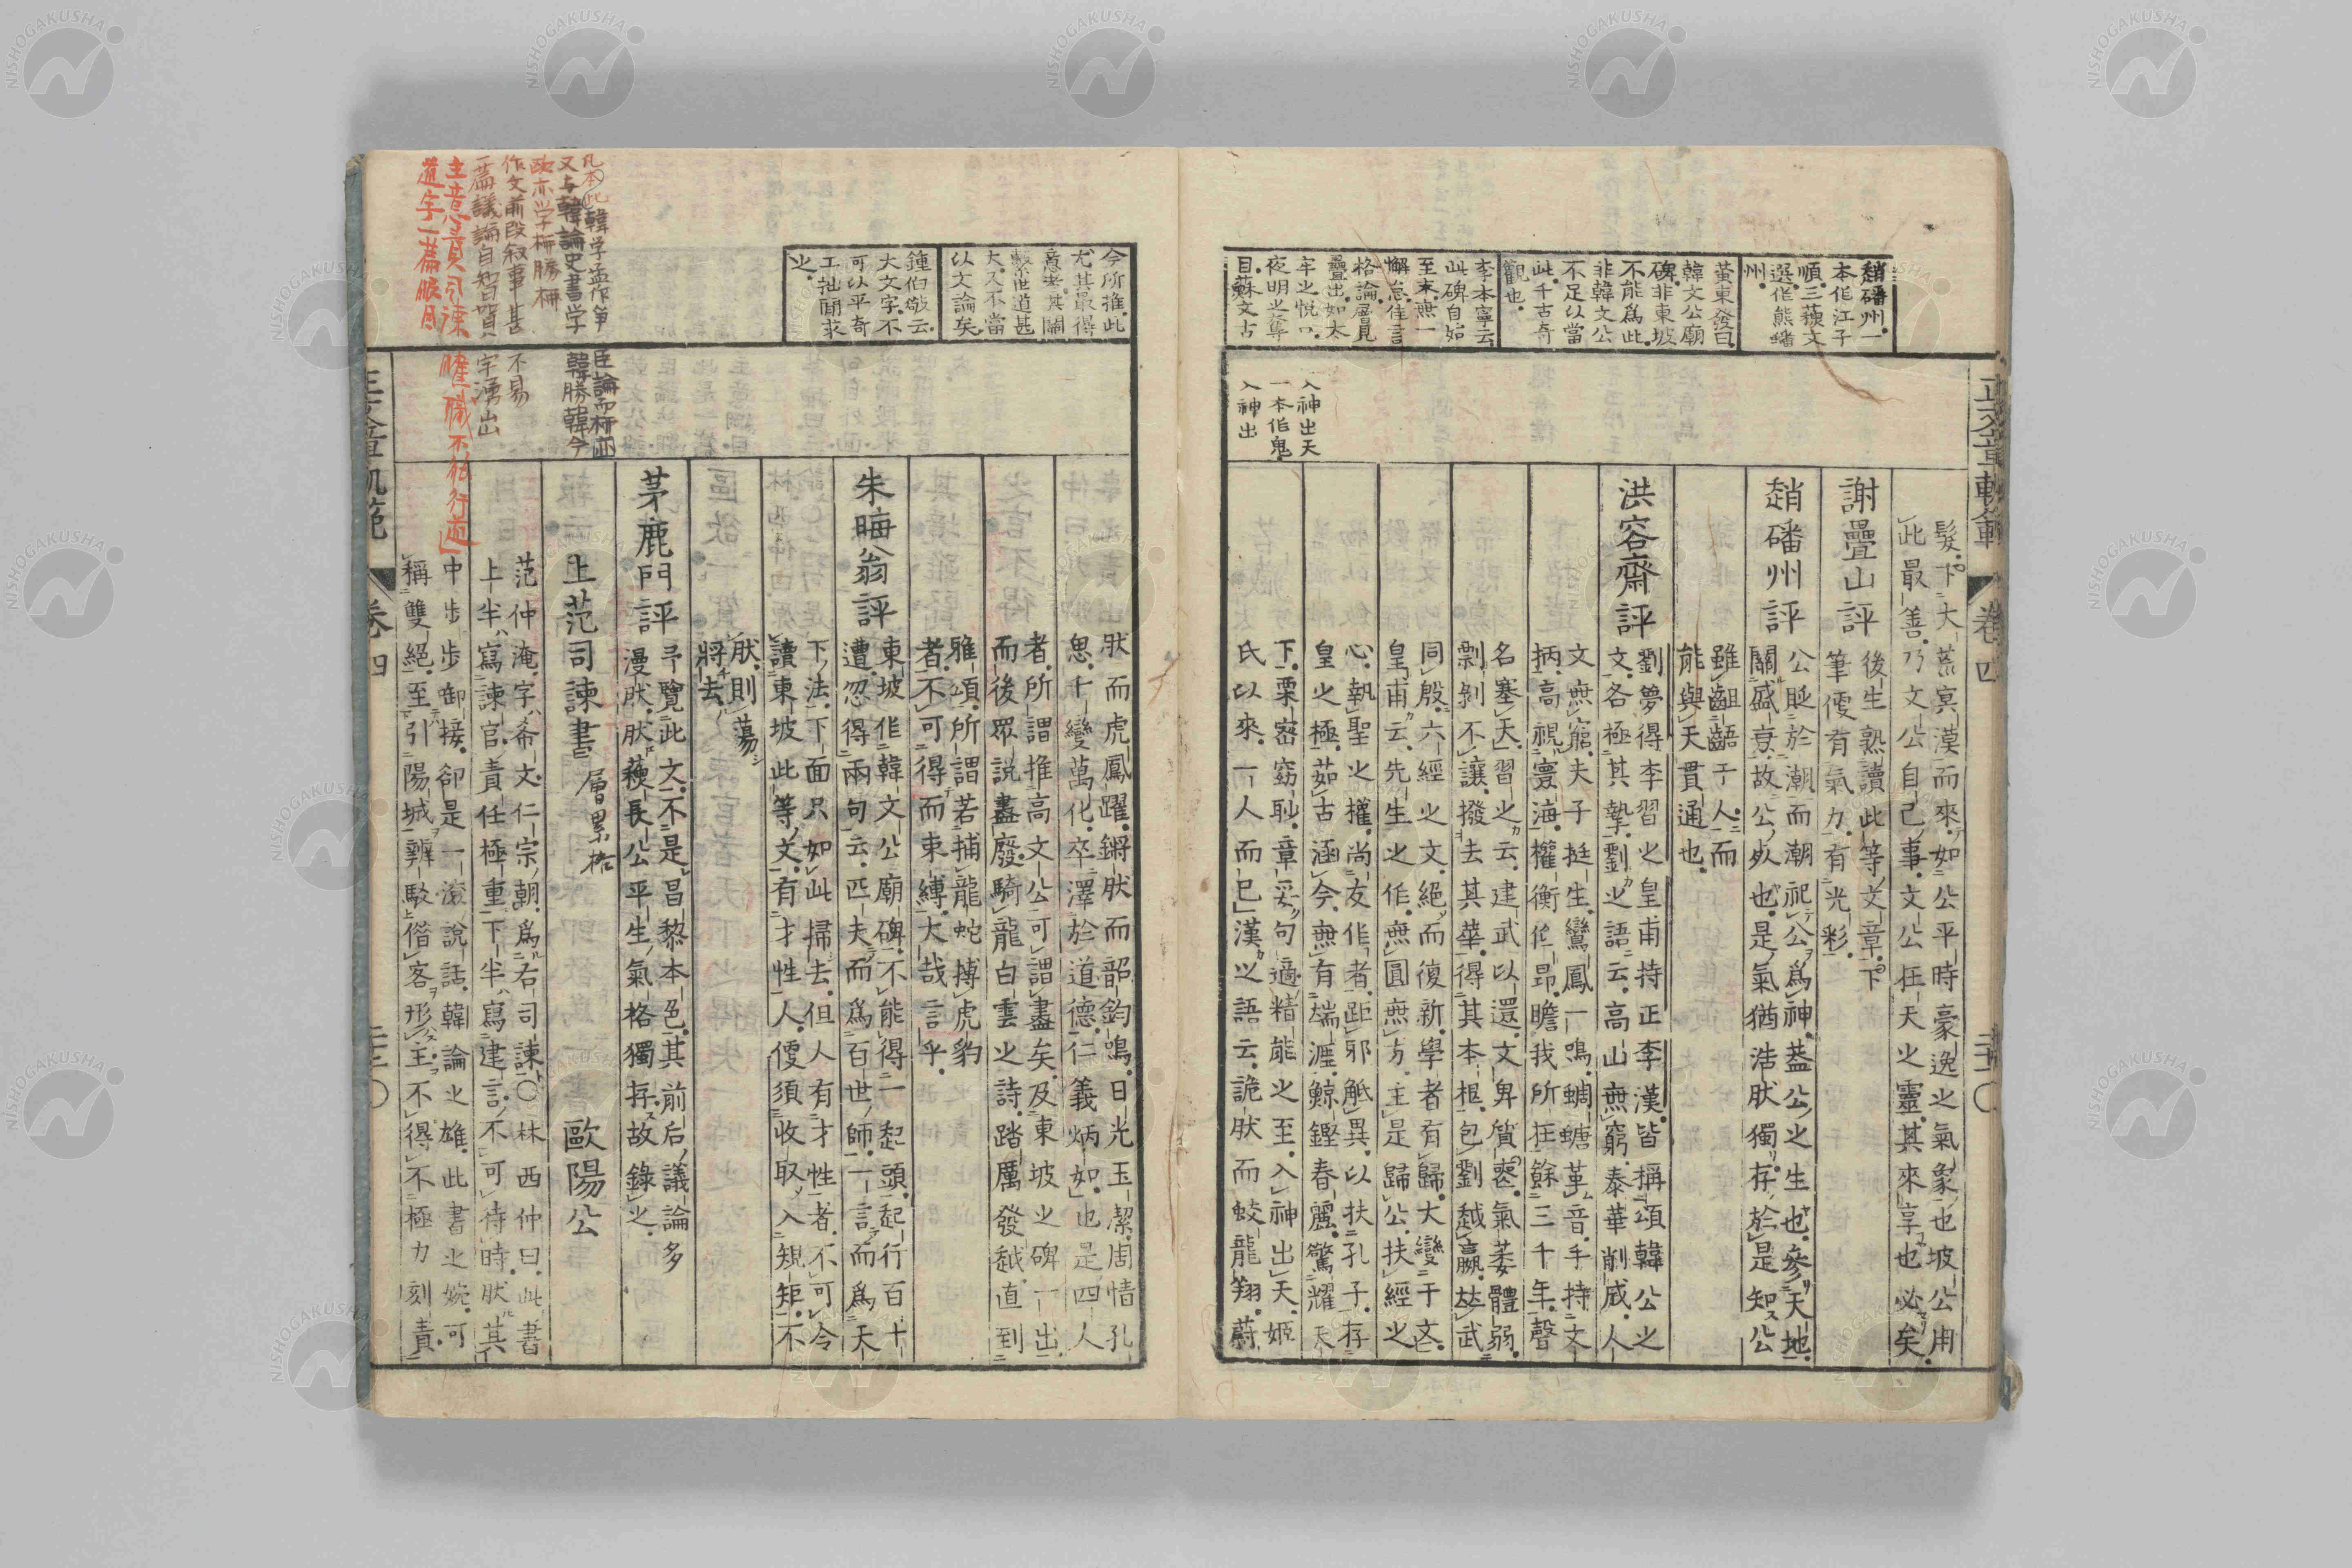 正文章軌範
卷四
三十〇
趙磻州一
本作江子
順三蘓文
選作熊蟠
州
黃東發曰
韓文公廟
碑非東坡
不能爲此
非韓文公
不足以當
此千古奇
觀也
李本寧云
此碑自始
至末無一
懈怠佳言
格論層見
疊出如太
牢之悅口
夜明之奪
目蘇文古
入神出天
一本作鬼
入神出
髮下大荒冥漠而來如公平時豪逸之氣象也坡公用
此最善乃文公自己事文公在天之靈其來享也必矣
謝疊山評
後生熟讀此等文章下
筆便有氣力有光彩
趙磻州評
公貶於潮而潮祀公爲神葢公之生也參天地
關盛衰故公歿也是氣猶浩肰獨存於是知公
雖齟齬于人而
能與天貫通也
洪容齋評
劉夢得李習之皇甫持正李漢皆稱頌韓公之
文各極其摯劉之語云高山無窮泰華削成人
文無窮夫子挺生鸞鳳一鳴蜩螗革音手持文
柄高視寰海權衡低昂瞻我所在餘三千年聲
名塞天習之云建武以還文卑質喪氣萎體弱
剽剝不讓撥去其華得其本根包劉越嬴並武
同殷六經之文絕而復新學者有歸大變于文
皇甫云先生之作無圓無方主是歸公扶經之
心執聖之權尚友作者距邪觝異以扶孔子存
皇之極茹古涵今無有端涯鯨鏗春麗驚耀天
下栗密窈眇章妥句適精能之至入神出天姬
氏以來一人而已漢之語云詭肰而蛟龍翔蔚
今所推此
尤其最得
意者其關
繫世道甚
大又不當
以文論矣
鍾伯敬云
大文字不
可以平奇
工拙閒求
之
肰而虎鳳躍鏘肰而韶鈞鳴日光玉潔周情孔
思千變萬化卒澤於道德仁義炳如也是四人
者所謂推高文公可謂盡矣及東坡之碑一出
而後眾說盡廢騎龍白雲之詩踏厲發越直到
雅頌所謂若捕龍蛇搏虎豹
者不可得而束縛大哉言乎
朱晦翁評
東坡作韓文公廟碑不能得一起頭起行百十
遭忽得兩句云匹夫而爲百世師一言而爲天
下法下面只如此掃去但人有才性者不可令
讀東坡此等文有才性人便須收取入規矩不
肰則蕩
將去
茅鹿門評
予覽此文不是昌黎本色其前后議論多
漫肰肰蘓長公平生氣格獨存故錄之
上范司諫書
層累格
歐陽公
范仲淹字希文仁宗朝爲右司諫〇林西仲曰此書
上半寫諫官責任極重下半寫建言不可待時肰其
中步步御接卻是一滾說話韓論之雄此書之婉可
稱雙絕至引陽城辨駁借客形主不得不極力刻責
又与韓論史書学
歐亦学柳勝柳
作文前段叙事甚
不易
一篇議論自智買八
字湧出
主意責司諫
道字一篇眼目
卷四
三十〇